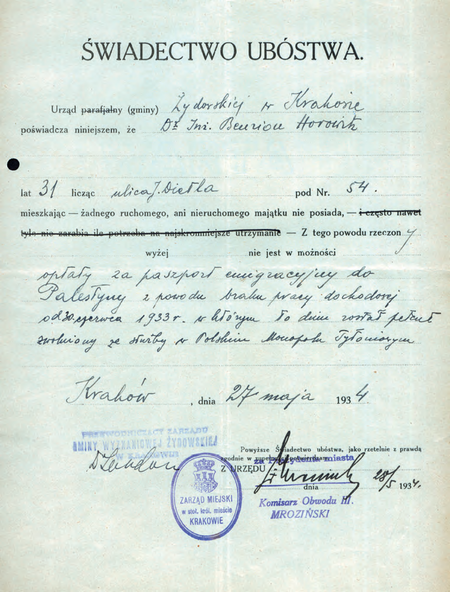 ŚWIADECTWO UBÓSTWA.
Urząd parafjalny (gminy) Żydowskiej w Krakowie
poświadcza niniejszem, że Dr Inż. Benzion Horowitz
lat 31 licząc ulica J. Dietla pod Nr. 54.
mieszkając — żadnego ruchomego, ani nieruchomego majątku nie posiada, — i często nawet
tyle nie zarabia ile potrzeba na najskromniejsze utrzymanie — Z tego powodu rzeczony
wyżej nie jest w możności
opłaty za paszport emigracyjny do
Palestyny z powodu braku pracy dochodowej
od 30 czerwca 1933 r. w którym to dniu został petent
zwolniony ze służby w Polskim Monopolu Tytoniowym
Kraków, dnia 27 maja 1934
PRZEWODNICZĄCY ZARZĄDU
GMINY WYZNANIOWEJ ŻYDOWSKIEJ
W KRAKOWIE
Powyższe Świadectwo ubóstwa, jako rzetelnie z prawdą
zgodnie w
za Prezydenta miasta
Z URZĘDU
dnia 28/5 1934.
ZARZĄD MIEJSKI
w stoł. król. mieście
KRAKOWIE
Komisarz Obwodu III.
MROZIŃSKI